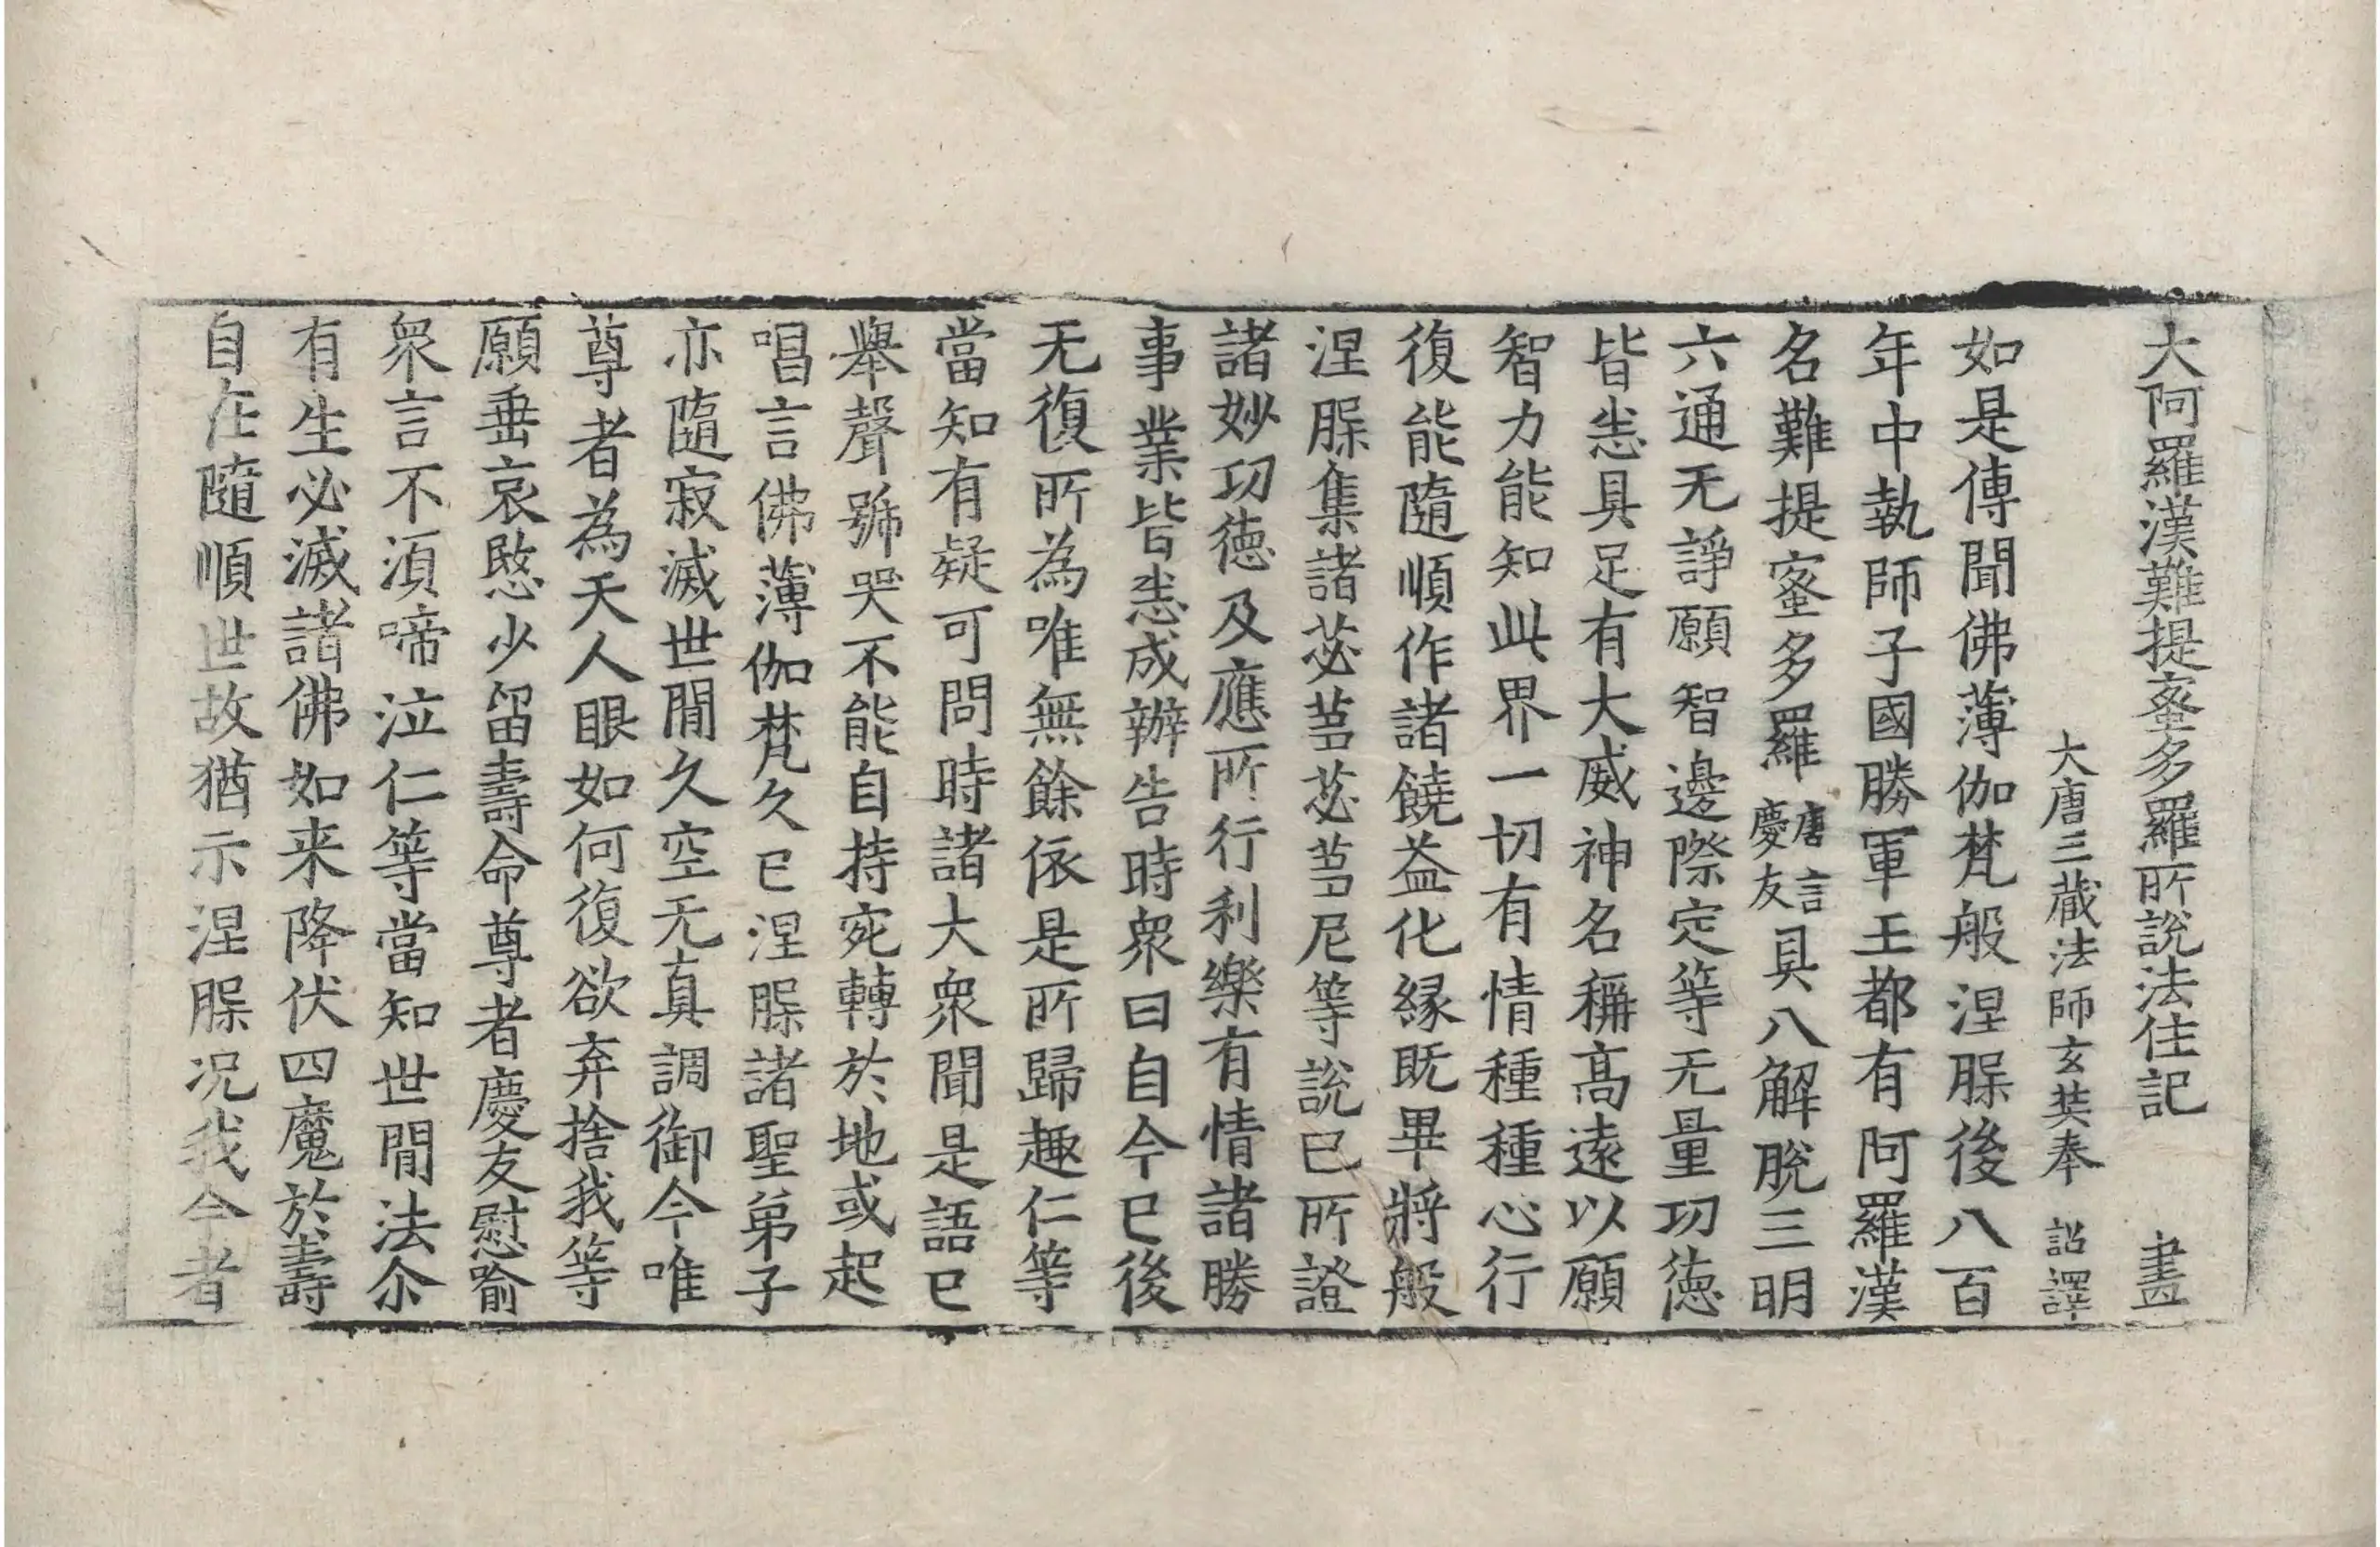 大阿羅漢難提蜜多羅所說法住記 晝
大唐三藏法師玄奘奉 詔譯
如是傳聞佛薄伽梵般涅槃後八百
年中執師子國勝軍王都有阿羅漢
名難提蜜多羅唐言慶友具八解脫三明
六通无諍願智邊際定等无量功德
皆悉具足有大威神名稱高遠以願
智力能知此界一切有情種種心行
復能隨順作諸饒益化緣既畢將般
涅槃集諸苾芻苾芻尼等說已所證
諸妙功德及應所行利樂有情諸勝
事業皆悉成辦告時衆曰自今已後
无復所為唯無餘依是所歸趣仁等
當知有疑可問時諸大衆聞是語已
舉聲號哭不能自持宛轉於地或起
唱言佛薄伽梵久已涅槃諸聖弟子
亦隨寂滅世閒久空无真調御今唯
尊者為天人眼如何復欲弃捨我等
願垂哀愍少留壽命尊者慶友慰喻
衆言不須啼泣仁等當知世閒法尒
有生必滅諸佛如来降伏四魔於壽
自在隨順世故猶示涅槃况我今者